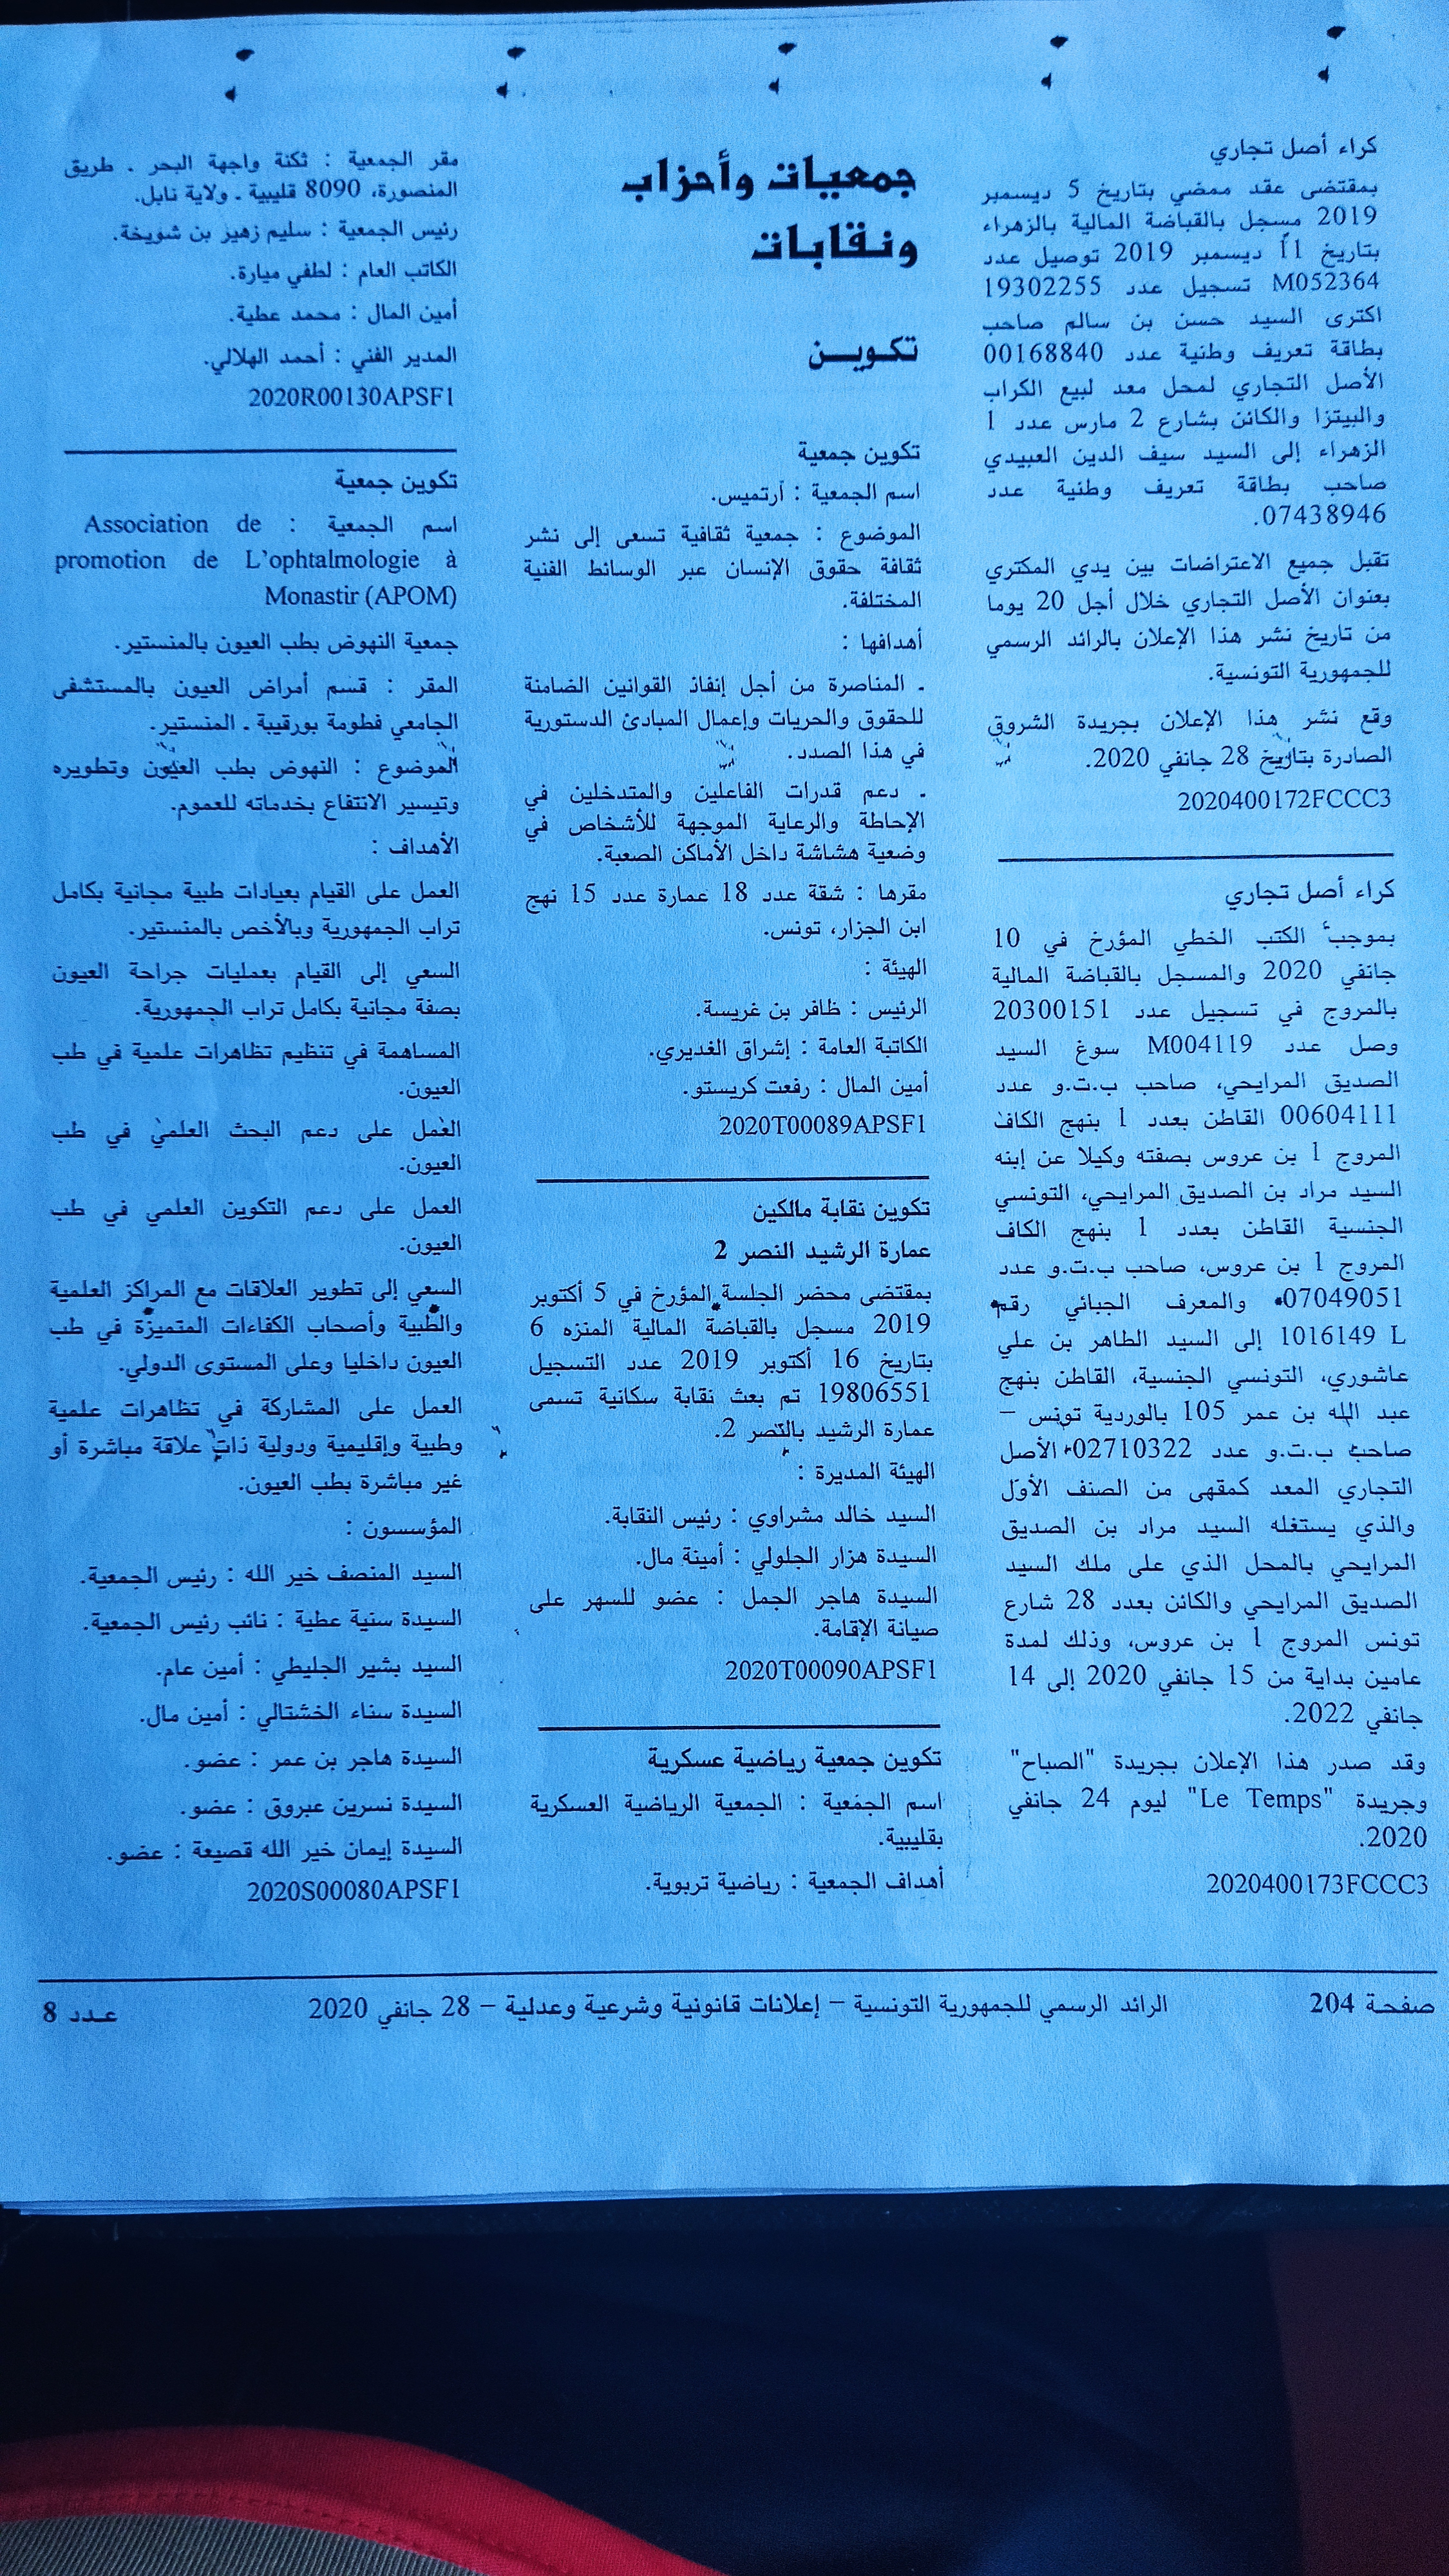 كراء أصل تجاري
بمقتضى عقد ممضي بتاريخ 5 ديسمبر
2019 مسجل بالقباضة المالية بالزهراء
بتاريخ 11 ديسمبر 2019 توصيل عدد
M052364 تسجيل عدد 19302255
اكترى السيد حسن بن سالم صاحب
بطاقة تعريف وطنية عدد 00168840
الأصل التجاري لمحل معد لبيع الكراب
والبيتزا والكائن بشارع 2 مارس عدد 1
الزهراء إلى السيد سيف الدين العبيدي
صاحب بطاقة تعريف وطنية عدد
07438946.
تقبل جميع الاعتراضات بين يدي المكتري
بعنوان الأصل التجاري خلال أجل 20 يوما
من تاريخ نشر هذا الإعلان بالرائد الرسمي
للجمهورية التونسية.
وقع نشر هذا الإعلان بجريدة الشروق
الصادرة بتاريخ 28 جانفي 2020.
2020400172FCCC3
كراء أصل تجاري
بموجب الكتب الخطي المؤرخ في 10
جانفي 2020 والمسجل بالقباضة المالية
بالمروج في تسجيل عدد 20300151
وصل عدد M004119 سوغ السيد
الصديق المرايحي، صاحب ب.ت.و عدد
00604111 القاطن بعدد 1 بنهج الكاف
المروج 1 بن عروس بصفته وكيلا عن إبنه
السيد مراد بن الصديق المرايحي، التونسي
الجنسية القاطن بعدد 1 بنهج الكاف
المروج 1 بن عروس، صاحب ب.ت.و عدد
07049051 والمعرف الجبائي رقم
1016149 L إلى السيد الطاهر بن علي
عاشوري، التونسي الجنسية، القاطن بنهج
عبد الله بن عمر 105 بالوردية تونس –
صاحب ب.ت.و عدد 02710322 الأصل
التجاري المعد كمقهى من الصنف الأول
والذي يستغله السيد مراد بن الصديق
المرايحي بالمحل الذي على ملك السيد
الصديق المرايحي والكائن بعدد 28 شارع
تونس المروج 1 بن عروس، وذلك لمدة
عامين بداية من 15 جانفي 2020 إلى 14
جانفي 2022.
وقد صدر هذا الإعلان بجريدة "الصباح"
وجريدة "Le Temps" ليوم 24 جانفي
2020.
2020400173FCCC3
جمعيات وأحزاب
ونقابات
تكويــن
تكوين جمعية
اسم الجمعية : آرتميس.
الموضوع : جمعية ثقافية تسعى إلى نشر
ثقافة حقوق الإنسان عبر الوسائط الفنية
المختلفة.
أهدافها :
ـ المناصرة من أجل إنفاذ القوانين الضامنة
للحقوق والحريات وإعمال المبادئ الدستورية
في هذا الصدد.
ـ دعم قدرات الفاعلين والمتدخلين في
الإحاطة والرعاية الموجهة للأشخاص في
وضعية هشاشة داخل الأماكن الصعبة.
مقرها : شقة عدد 18 عمارة عدد 15 نهج
ابن الجزار، تونس.
الهيئة :
الرئيس : ظافر بن غريسة.
الكاتبة العامة : إشراق الغديري.
أمين المال : رفعت كريستو.
2020T00089APSF1
تكوين نقابة مالكين
عمارة الرشيد النصر 2
بمقتضى محضر الجلسة المؤرخ في 5 أكتوبر
2019 مسجل بالقباضة المالية المنزه 6
بتاريخ 16 أكتوبر 2019 عدد التسجيل
19806551 تم بعث نقابة سكانية تسمى
عمارة الرشيد بالنصر 2.
الهيئة المديرة :
السيد خالد مشراوي : رئيس النقابة.
السيدة هزار الجلولي : أمينة مال.
السيدة هاجر الجمل : عضو للسهر على
صيانة الإقامة.
2020T00090APSF1
تكوين جمعية رياضية عسكرية
اسم الجمعية : الجمعية الرياضية العسكرية
بقليبية.
أهداف الجمعية : رياضية تربوية.
مقر الجمعية : ثكنة واجهة البحر ـ طريق
المنصورة، 8090 قليبية ـ ولاية نابل.
رئيس الجمعية : سليم زهيز بن شويخة.
الكاتب العام : لطفي ميارة.
أمين المال : محمد عطية.
المدير الفني : أحمد الهلالي.
2020R00130APSF1
تكوين جمعية
اسم الجمعية : Association de
promotion de L'ophtalmologie à
Monastir (APOM)
جمعية النهوض بطب العيون بالمنستير.
المقر : قسم أمراض العيون بالمستشفى
الجامعي فطومة بورقيبة ـ المنستير.
الموضوع : النهوض بطب العيون وتطويره
وتيسير الانتفاع بخدماته للعموم.
الأهداف :
العمل على القيام بعيادات طبية مجانية بكامل
تراب الجمهورية وبالأخص بالمنستير.
السعي إلى القيام بعمليات جراحة العيون
بصفة مجانية بكامل تراب الجمهورية.
المساهمة في تنظيم تظاهرات علمية في طب
العيون.
العمل على دعم البحث العلمي في طب
العيون.
العمل على دعم التكوين العلمي في طب
العيون.
السعي إلى تطوير العلاقات مع المراكز العلمية
والطبية وأصحاب الكفاءات المتميزة في طب
العيون داخليا وعلى المستوى الدولي.
العمل على المشاركة في تظاهرات علمية
وطبية وإقليمية ودولية ذات علاقة مباشرة أو
غير مباشرة بطب العيون.
المؤسسون :
السيد المنصف خير الله : رئيس الجمعية.
السيدة سنية عطية : نائب رئيس الجمعية.
السيد بشير الجليطي : أمين عام.
السيدة سناء الخشتالي : أمين مال.
السيدة هاجر بن عمر : عضو.
السيدة نسرين عبروق : عضو.
السيدة إيمان خير الله قصيعة : عضو.
2020S00080APSF1
صفحة 204 الرائد الرسمي للجمهورية التونسية – إعلانات قانونية وشرعية وعدلية – 28 جانفي 2020 عـدد 8